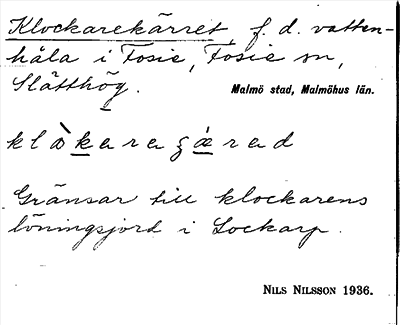 Klockarekärret, f. d. vatten-
håla i Fosie, Fosie sn,
Slätthög.
Malmö stad, Malmöhus län.
Gränsar till klockarens
löningsjord i Lockarp.
NILS NILSSON 1936.